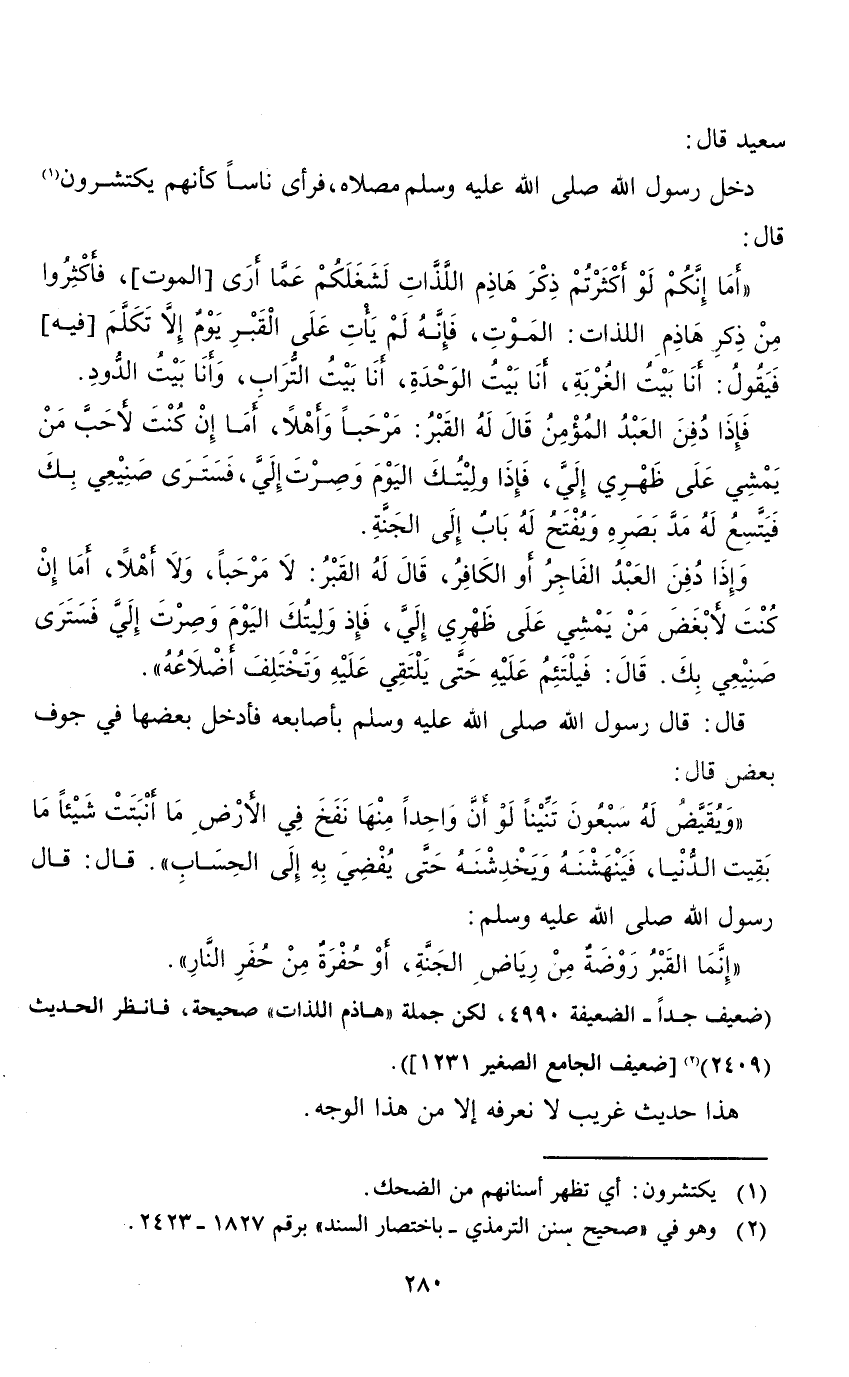 سعيد قال:
دخل رسول الله صلى الله عليه وسلم مصلاه، فرأى ناساً كأنهم يكتشرون(١)
قال:
«أَمَا إِنَّكُمْ لَوْ أَكْثَرْتُمْ ذِكْرَ هَاذِمِ اللَّذَّاتِ لَشَغَلَكُمْ عَمَّا أَرَى [الموت]، فَأَكْثِرُوا
مِنْ ذِكرِ هَاذِمِ اللذات: المَوْتِ، فَإِنَّهُ لَمْ يَأْتِ عَلَى الْقَبْرِ يَوْمٌ إِلَّا تَكَلَّمَ [فيه]
فَيَقُولُ: أَنَا بَيْتُ الغُرْبَةِ، أَنَا بَيْتُ الوَحْدَةِ، أَنَا بَيْتُ التُّرَابِ، وَأَنَا بَيْتُ الدُّودِ.
فَإِذَا دُفِنَ العَبْدُ المُؤْمِنُ قَالَ لَهُ القَبْرُ: مَرْحَباً وَأَهْلًا، أَمَا إِنْ كُنْتَ لَأَحَبَّ مَنْ
يَمْشِي عَلَى ظَهْرِي إِلَيَّ، فَإِذَا ولِيْتُكَ اليَوْمَ وَصِرْتَ إِلَيَّ، فَسَتَرَى صَنِيْعِي بِكَ
فَيَتَّسِعُ لَهُ مَدَّ بَصَرِهِ وَيُفْتَحُ لَهُ بَابٌ إِلَى الجَنَّةِ.
وَإِذَا دُفِنَ العَبْدُ الفَاجِرُ أَو الكَافِرُ، قَالَ لَهُ القَبْرُ: لَا مَرْحَباً، وَلَا أَهْلًا، أَمَا إِنْ
كُنْتَ لَأَبْغَضَ مَنْ يَمْشِي عَلَى ظَهْرِي إِلَيَّ، فَإِذ وَلِيتُكَ اليَوْمَ وَصِرْتَ إِلَيَّ فَسَتَرَى
صَنِيْعِي بِكَ. قَالَ: فَيَلْتَئِمُ عَلَيْهِ حَتَّى يَلْتَقِي عَلَيْهِ وَتَخْتَلِفَ أَضْلَاعُهُ».
قال: قال رسول الله صلى الله عليه وسلم بأصابعه فأدخل بعضها في جوف
بعض قال:
«وَيُقَيَّضُ لَهُ سَبْعُونَ تَنِّيْناً لَوْ أَنَّ وَاحِداً مِنْهَا نَفَخَ فِي الأَرْضِ مَا أَنْبَتَتْ شَيْئاً مَا
بَقِيت الدُّنْيا، فَيَنْهَشْنَهُ وَيَخْدِشْنَهُ حَتَّى يُفْضِيَ بِهِ إِلَى الحِسَابِ». قال: قال
رسول الله صلى الله عليه وسلم:
«إِنَّمَا القَبْرُ رَوْضَةٌ مِنْ رِيَاضِ الجَنَّةِ، أَوْ حُفْرَةٌ مِنْ حُفَرِ النَّارِ».
(ضعيف جداً ـ الضعيفة ٤٩٩٠، لكن جملة «هاذم اللذات» صحيحة، فانظر الحديث
(٢٤٠٩)(٢) [ضعيف الجامع الصغير ١٢٣١]).
هذا حديث غريب لا نعرفه إلا من هذا الوجه.
(١) يكتشرون: أي تظهر أسنانهم من الضحك.
(٢) وهو في «صحيح سنن الترمذي ـ باختصار السند» برقم ١٨٢٧ ـ ٢٤٢٣.
٢٨٠